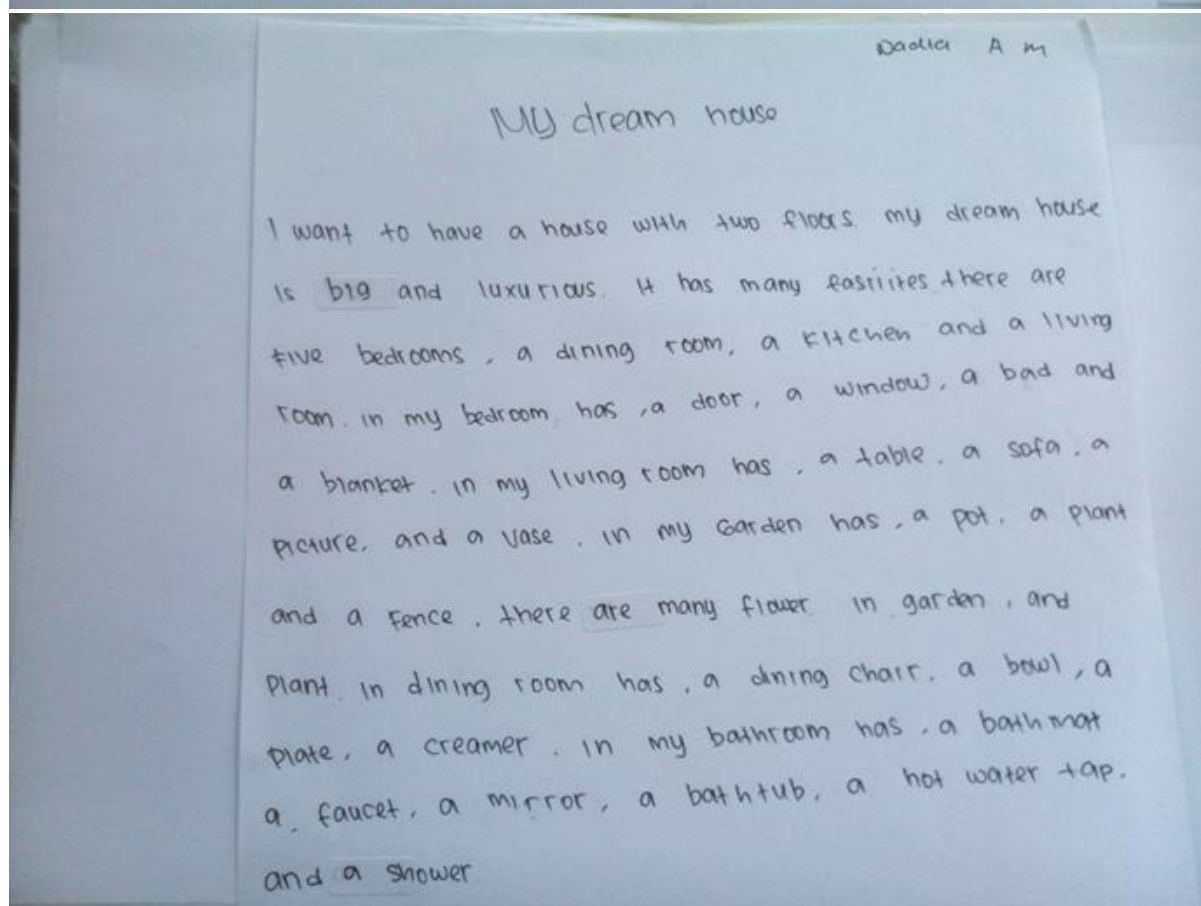 Nadia A M
My dream house
I want to have a house with two floors. my dream house
is big and luxurious. It has many fasriites there are
five bedrooms, a dining room, a kitchen and a living
room. in my bedroom has, a door, a window, a bad and
a blanket. in my living room has, a table, a sofa, a
picture, and a vase. in my Garden has, a pot, a plant
and a fence. there are many flower in garden, and
plant. in dining room has, a dining chair, a bowl, a
plate, a creamer. in my bathroom has, a bath matt
a, faucet, a mirror, a bathtub, a hot water tap.
and a shower